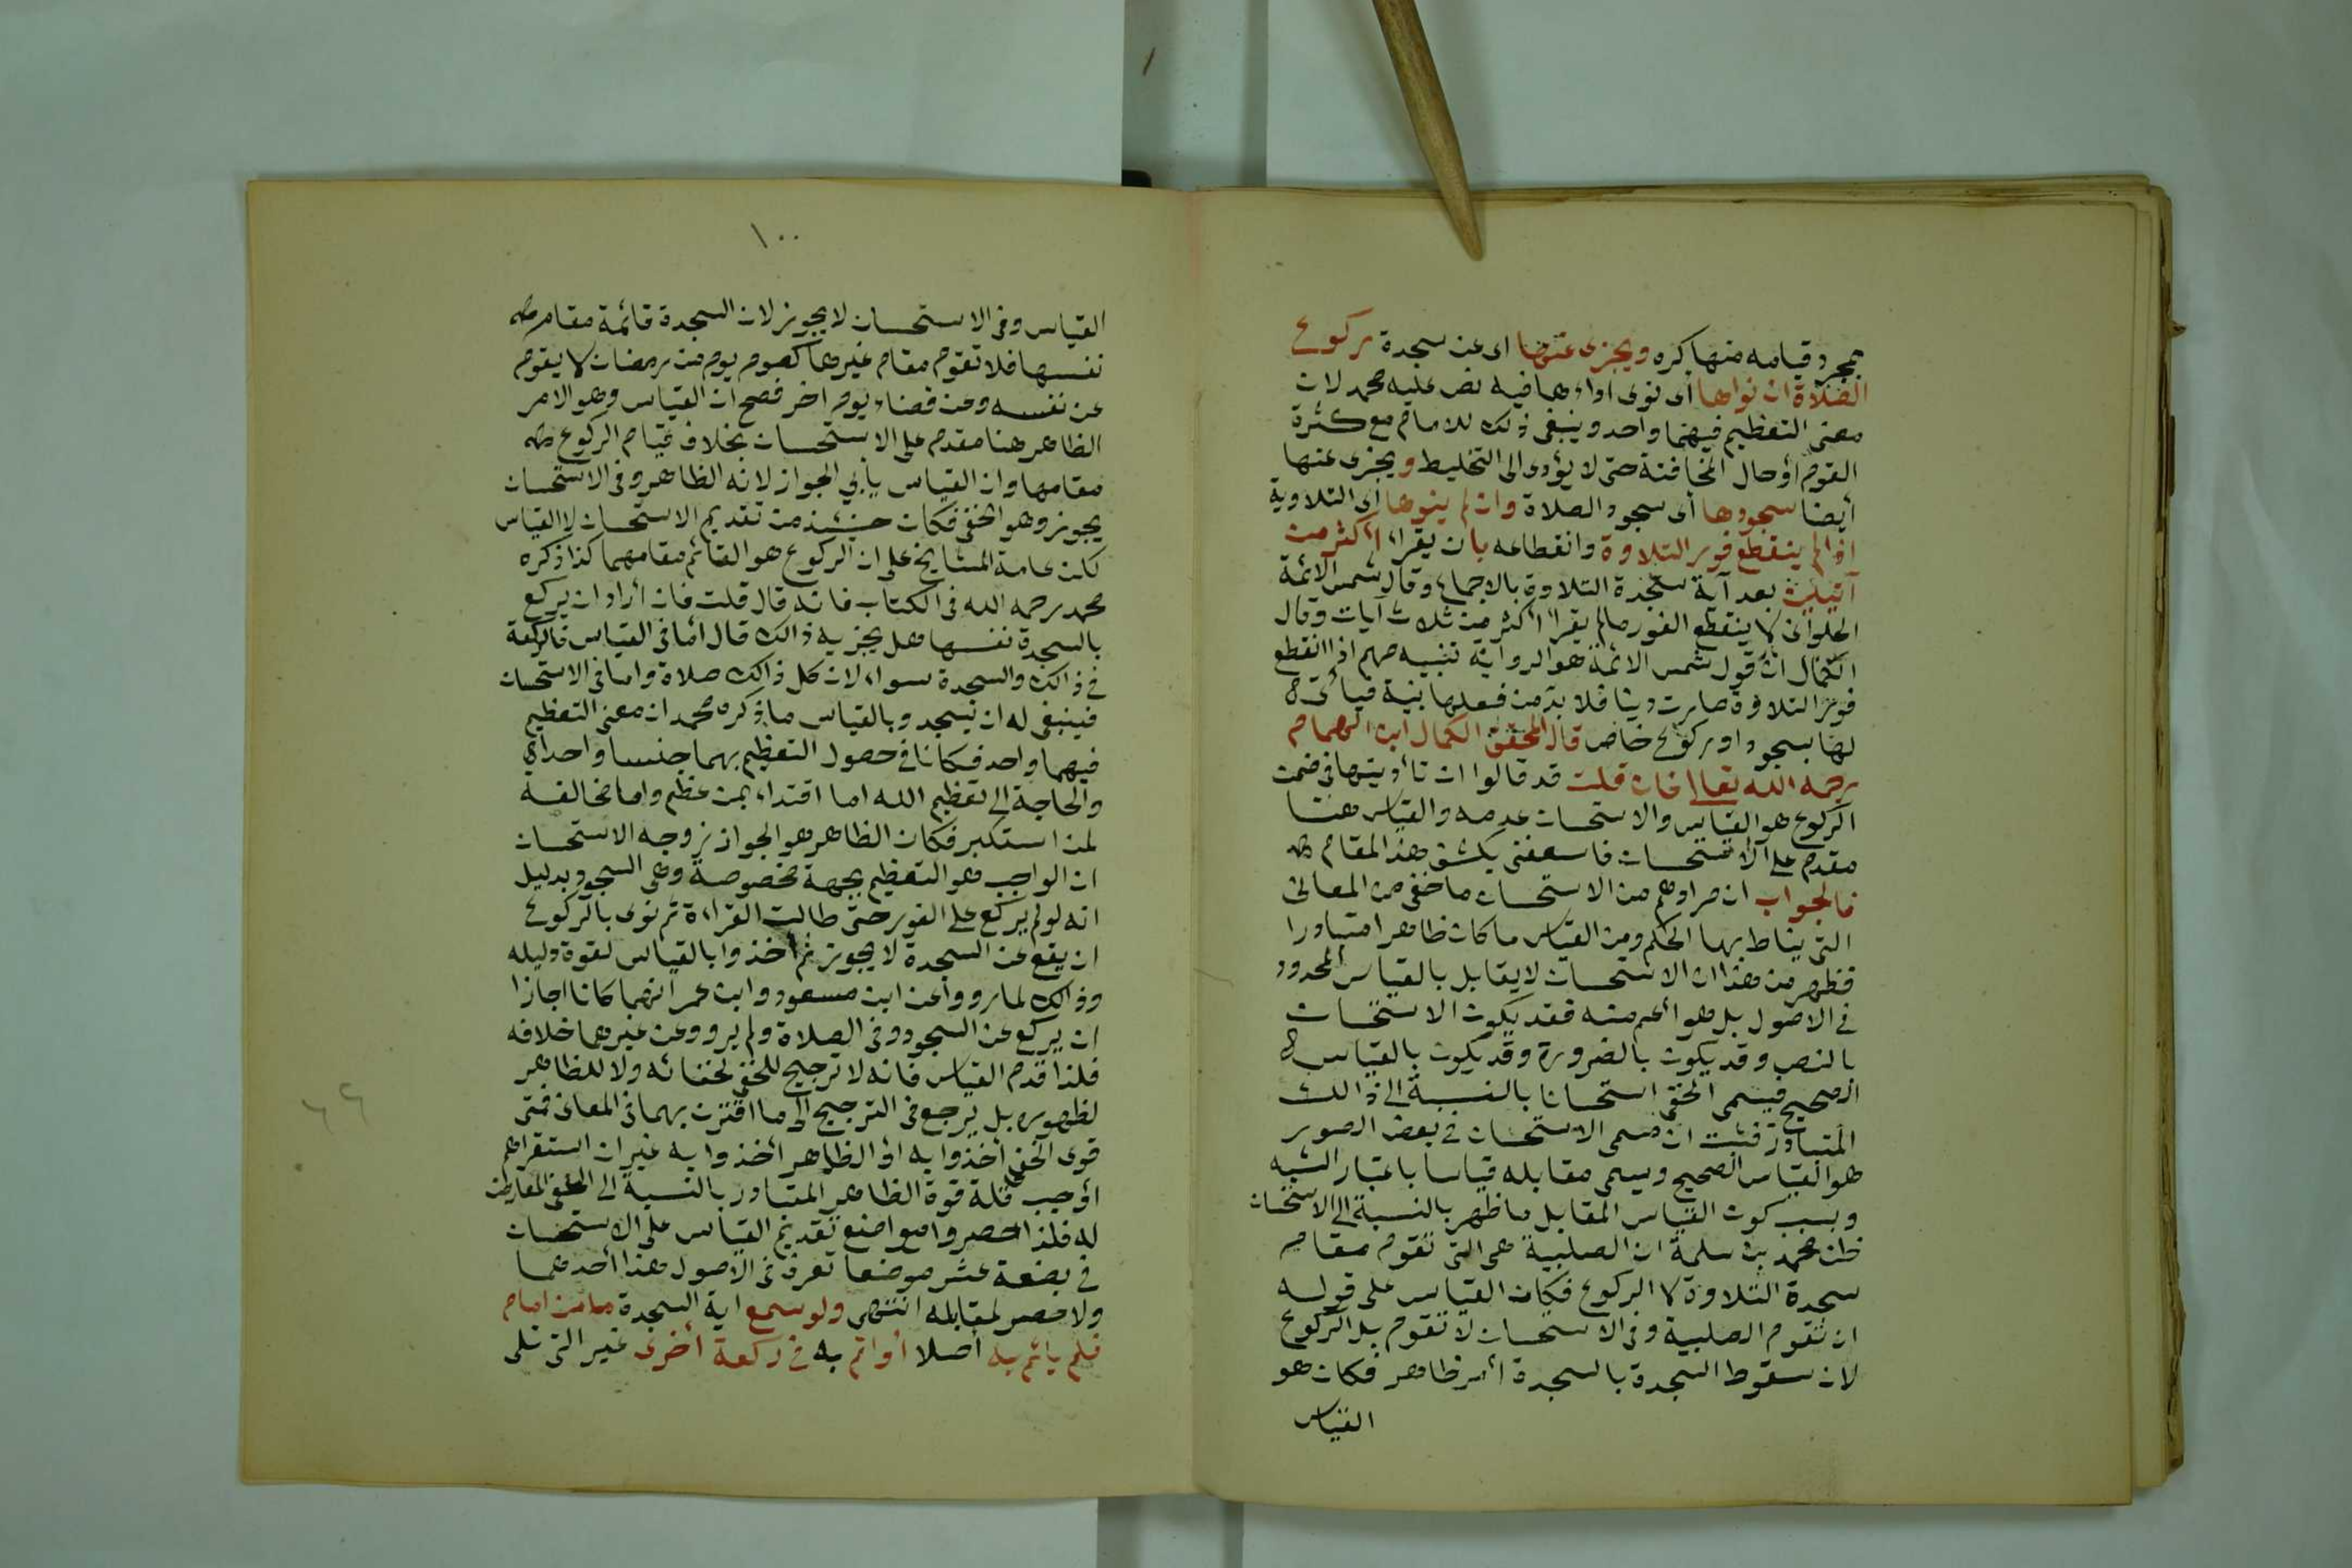 بمجرد قيامه منها كره ويجزى عنها اى عن سجدة ركوع
الصلاة ان نواها أى نوى اداءها فيه نص عليه محمد لان
معنى التعظيم فيهما واحد وينبغى ذلك للامام مع كثرة
القوم أو حال المخافتة حتى لا يؤدى الى التخليط ويجزى عنها
أيضا سجودها أى سجود الصلاة وان لم ينوها أى التلاوية
اذا لم ينقطع فور التلاوة وانقطاعه بان يقراء اكثر من
آيتين بعد آية سجدة التلاوة بالاجماع وقال شمس الائمة
الحلوانى لا ينقطع الفور مالم يقرأ اكثر من ثلاث آيات وقال
الكمال ان قول شمس الائمة هو الرواية تنبيه مهم اذا انقطع
فور التلاوة صارت دينا فلا بد من فعلها بنية فيأتى
لها بسجود او ركوع خاص قال المحقق الكمال ابن الهمام
رحمه الله تعالى فان قلت قد قالوا ان تأديتها فى ضمن
الركوع هو القياس والاستحسان عدمه والقياس هنا
مقدم على الاستحسان فاسعفنى بكشف هذا المقام
فالجواب ان مرادهم من الاستحسان ما خفى من المعانى
التى يناط بها الحكم ومن القياس ما كان ظاهرا متبادرا
فظهر من هذا ان الاستحسان لا يقابل بالقياس المحدود
فى الاصول بل هو اعم منه فقد يكون الاستحسان
بالنص وقد يكون بالضرورة وقد يكون بالقياس
الصحيح فيسمى الخفى استحسانا بالنسبة الى ذالك
المتبادر فثبت ان مسمى الاستحسان فى بعض الصور
هو القياس الصحيح ويسمى مقابله قياسا باعتبار الشبه
وبسبب كون القياس المقابل ما ظهر بالنسبة الى الاستحسان
ظن محمد بن سلمة ان الصلبية هى التى تقوم مقام
سجدة التلاوة لا الركوع فكان القياس على قوله
ان تقوم الصلبية وفى الاستحسان لا تقوم بل الركوع
لان سقوط السجدة بالسجدة أمر ظاهر فكان هو
القياس
١٠٠
القياس وفى الاستحسان لا يجوز لان السجدة قائمة مقام
نفسها فلا تقوم مقام غيرها كصوم يوم من رمضان لا يقوم
عن نفسه وعن قضاء يوم اخر فصح ان القياس وهو الامر
الظاهر هنا مقدم على الاستحسان بخلاف قيام الركوع
مقامها وان القياس يأبى الجواز لانه الظاهر وفى الاستحسان
يجوز وهو الخفى فكان حينئذ من تقديم الاستحسان لا القياس
لكن عامة المشايخ على ان الركوع هو القائم مقامهما كذا ذكره
محمد رحمه الله فى الكتاب فانه قال قلت فان أراد ان يركع
بالسجدة نفسها هل يجزيه ذالك قال أما فى القياس فالركعة
فى ذالك والسجدة سواء لان كل ذالك صلاة واما فى الاستحسان
فينبغى له ان يسجد وبالقياس ما ذكره محمد ان معنى التعظيم
فيهما واحد فكانا فى حصول التعظيم بهما جنسا واحدا
والحاجة الى تعظيم الله اما اقتداء بمن عظم واما مخالفة
لمن استكبر فكان الظاهر هو الجواز وجه الاستحسان
ان الواجب هو التعظيم بجهة مخصوصة وهى السجود بدليل
انه لو لم يركع على الفور حتى طالت القراءة ثم نوى بالركوع
ان يقع عن السجدة لا يجوز ثم أخذوا بالقياس لقوة دليله
وذالك لما رووا عن ابن مسعود وابن عمر انهما كانا اجازا
ان يركع عن السجود وفى الصلاة ولم يرو وعن غيرهما خلافه
فلذا قدم القياس فانه لا ترجيح للخفى لخفائه ولا للظاهر
لظهوره بل يرجع فى الترجيح الى ما اقترن بهما فى المعانى فمتى
قوى الخفى أخذوا به أو الظاهر أخذوا به غير ان استقراهم
أوجب قلة قوة الظاهر المتبادر بالنسبة الى الخفى المعارض
له فلذا حصروا مواضع تقديم القياس على الاستحسان
فى بضعة عشر موضعا تعرف فى الاصول هذا أحدهما
ولا حصر لمقابله انتهى ولو سمع اية السجدة من امام
فلم يأتم به أصلا أو اتم به فى ركعة أخرى غير التى تلى
٦٦